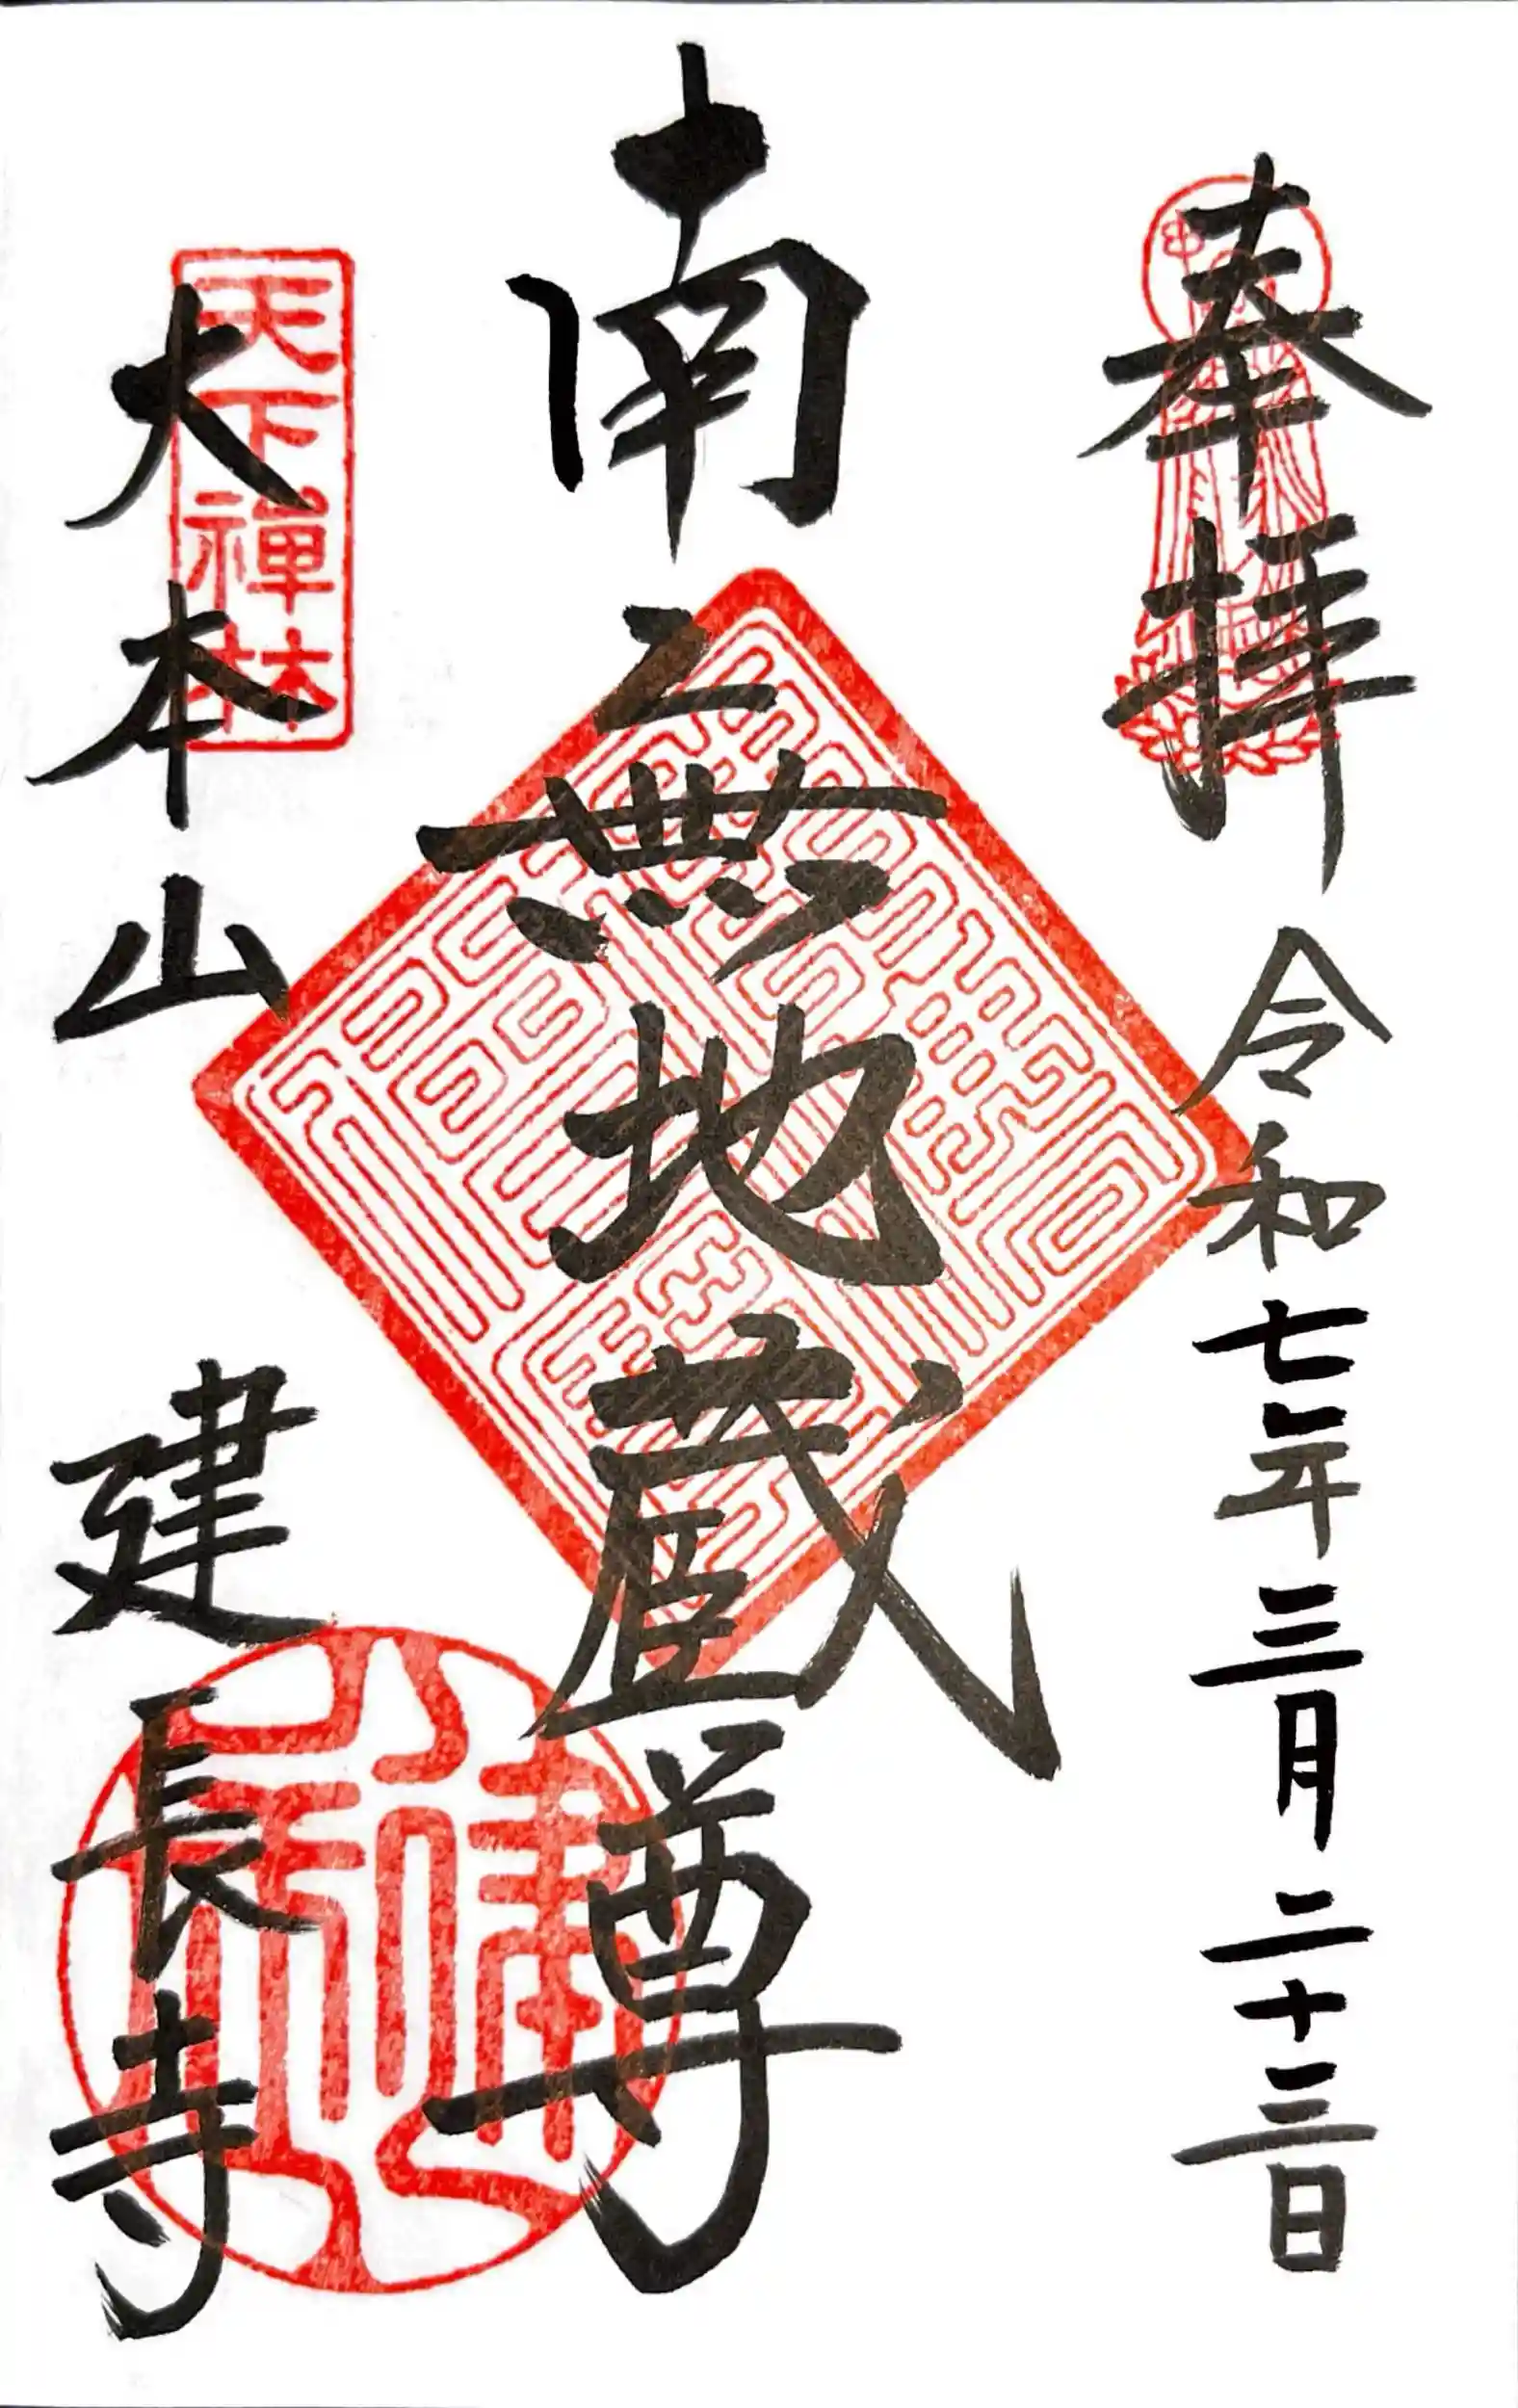 奉拝 令和七年三月二十三日
南無地蔵尊
天下禅林
大本山 建長寺